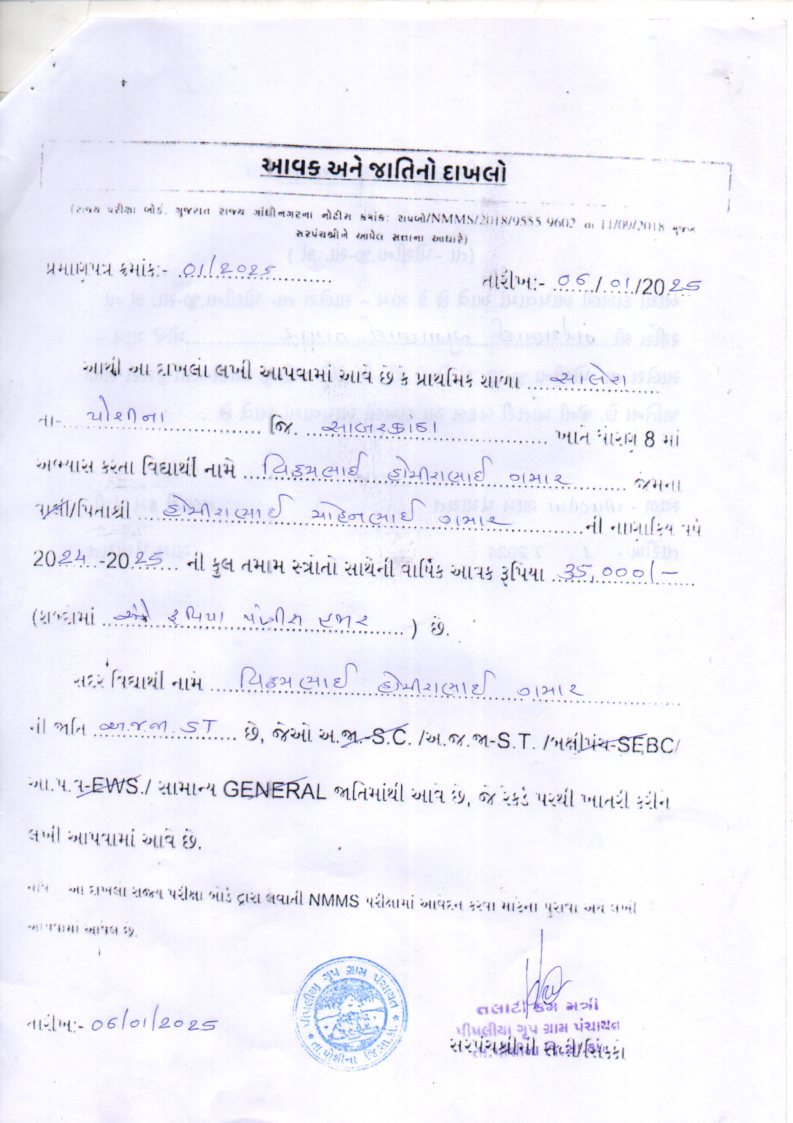 આવક અને જાતિનો દાખલો
(રાજ્ય પરીક્ષા બોર્ડ, ગુજરાત રાજ્ય ગાંધીનગરના નોટીસ ક્રમાંક: રાપબો/NMMS/2018/9555-9602 તા 11/09/2018 મુજબ
સરપંચશ્રીને આપેલ સત્તાના આધારે)
પ્રમાણપત્ર ક્રમાંક:- 01/2025
તારીખ:- 06/01/2025
આથી આ દાખલો લખી આપવામાં આવે છે કે પ્રાથમિક શાળા સાલેરા
તા- પોશીના જિ. સાબરકાંઠા ખાતે ધોરણ 8 માં
અભ્યાસ કરતા વિદ્યાર્થી નામે વિક્રમભાઈ હોમીરાભાઈ ગમાર જેમના
વાલી/પિતાશ્રી હોમીરાભાઈ મોહનભાઈ ગમાર ની નાણાકિય વર્ષ
2024-2025 ની કુલ તમામ સ્ત્રોતો સાથેની વાર્ષિક આવક રૂપિયા 35,000/-
(શબ્દોમાં રૂપિયા પાંત્રીસ હજાર ) છે.
સદર વિદ્યાર્થી નામે વિક્રમભાઈ હોમીરાભાઈ ગમાર
ની જાતિ અ.જ.જા. ST છે, જેઓ અ.જા.-S.C. /અ.જ.જા-S.T. /બક્ષીપંચ-SEBC/
આ.પ.વ-EWS./ સામાન્ય GENERAL જાતિમાંથી આવે છે, જે રેકર્ડ પરથી ખાતરી કરીને
લખી આપવામાં આવે છે.
નોંધ આ દાખલો રાજ્ય પરીક્ષા બોર્ડ દ્વારા લેવાતી NMMS પરીક્ષામાં આવેદન કરવા માટેના પુરાવા અર્થે લખી
આપવામાં આવેલ છે.
તારીખ:- 06/01/2025
પીપલીયા ગૃપ ગ્રામ પંચાયત
તા.પોશીના જિ.સા.કાં.
તલાટી કમ મંત્રી
પીપલીયા ગૃપ ગ્રામ પંચાયત
સરપંચશ્રીની સહી/સિક્કો